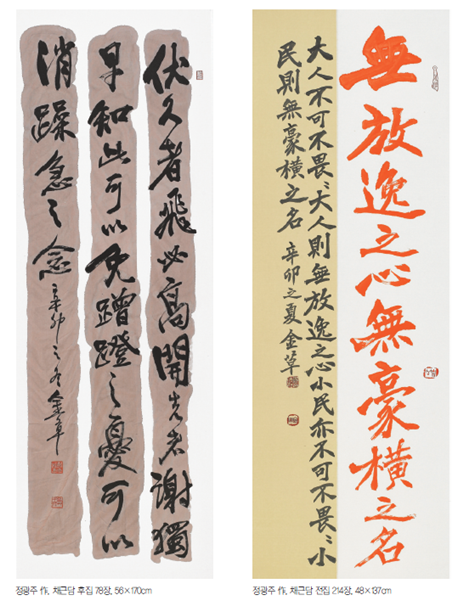 伏久者飛必高開先者謝獨
早知此可以免蹭蹬之憂可以
消躁急之念 辛卯之冬金草
정광주 作, 채근담 후집 78장, 56×170cm
無放逸之心無豪橫之名
大人不可不畏〻大人則無放逸之心小民亦不可不畏〻小
民則無豪橫之名 辛卯之夏金草
정광주 作, 채근담 전집 214장, 48×137cm